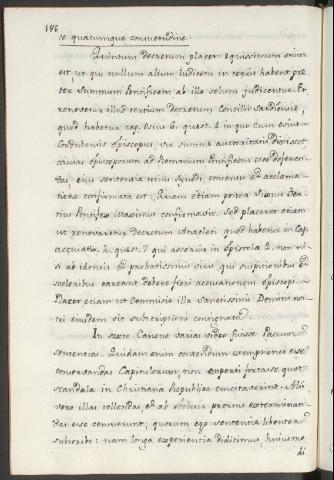 186
ce quacumque consuetudine
Quintum decretum placet; equissimum enim
est, ut qui nullum alium Iudicem in terris habent prę
ter summum Pontificem ab illa solum judicentur. Et
renovetur illud tertium Decretum Concilii Sardicensis,
quod habetur cap. Osius 6. quęst. 4 in quo cum Osius
Cordubensis Episcopus, vir summę auctoritatis dixisset
causas Episcoporum ad Romanum Pontificem esse deferen-
das, ejus sententia totius synodi consensu et acclama
tione confirmata est: quam etiam postea Sixtus Ter-
tius Pontifex Maximus confirmavit. Sed placeret etiam
ut renovaretur Decretum Anacleti quod habetur in Cap.
accusatio 2. quęst. 7 qui asseruit in Epistola 2. non ni-
si ab idoneis et probatissimis viris qui suspicionibus et
sceleribus careant debere fieri accusationem Episcopi.
Placet etiam ut Commissio illa Sanctissimi Domini nos-
tri ejusdem sit subscriptioni consignata.
In sexto Canone varias video fuisse Patrum
sententias. Quidam enim contendunt exemptiones esse
conservandas Capitulorum, non experti fortasse quot
scandala in Christiana Republica concitaverint. Alii
vero illas tollendas, et ab Ecclesia prorsus exterminan-
das esse censuerunt, quorum ego sententię libenter
subscribo: nam longa experientia didicimus, hujusmo
di